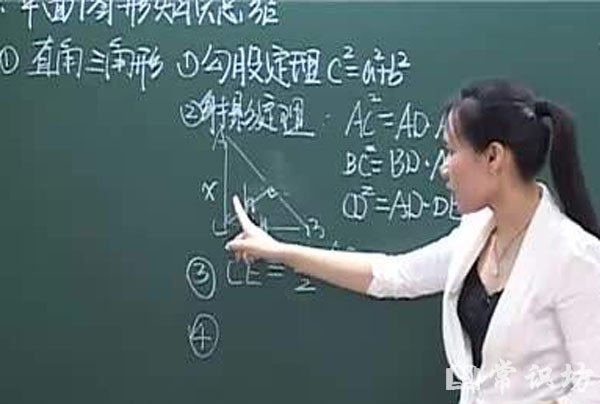 平面图形知识总结
① 直角三角形 ①勾股定理 C²=a²+b²
②射影定理: AC²=AD·A
BC²=BD·A
CD²=AD·DB
A
X
h
C
B
③ CE=
2
④
常识坊